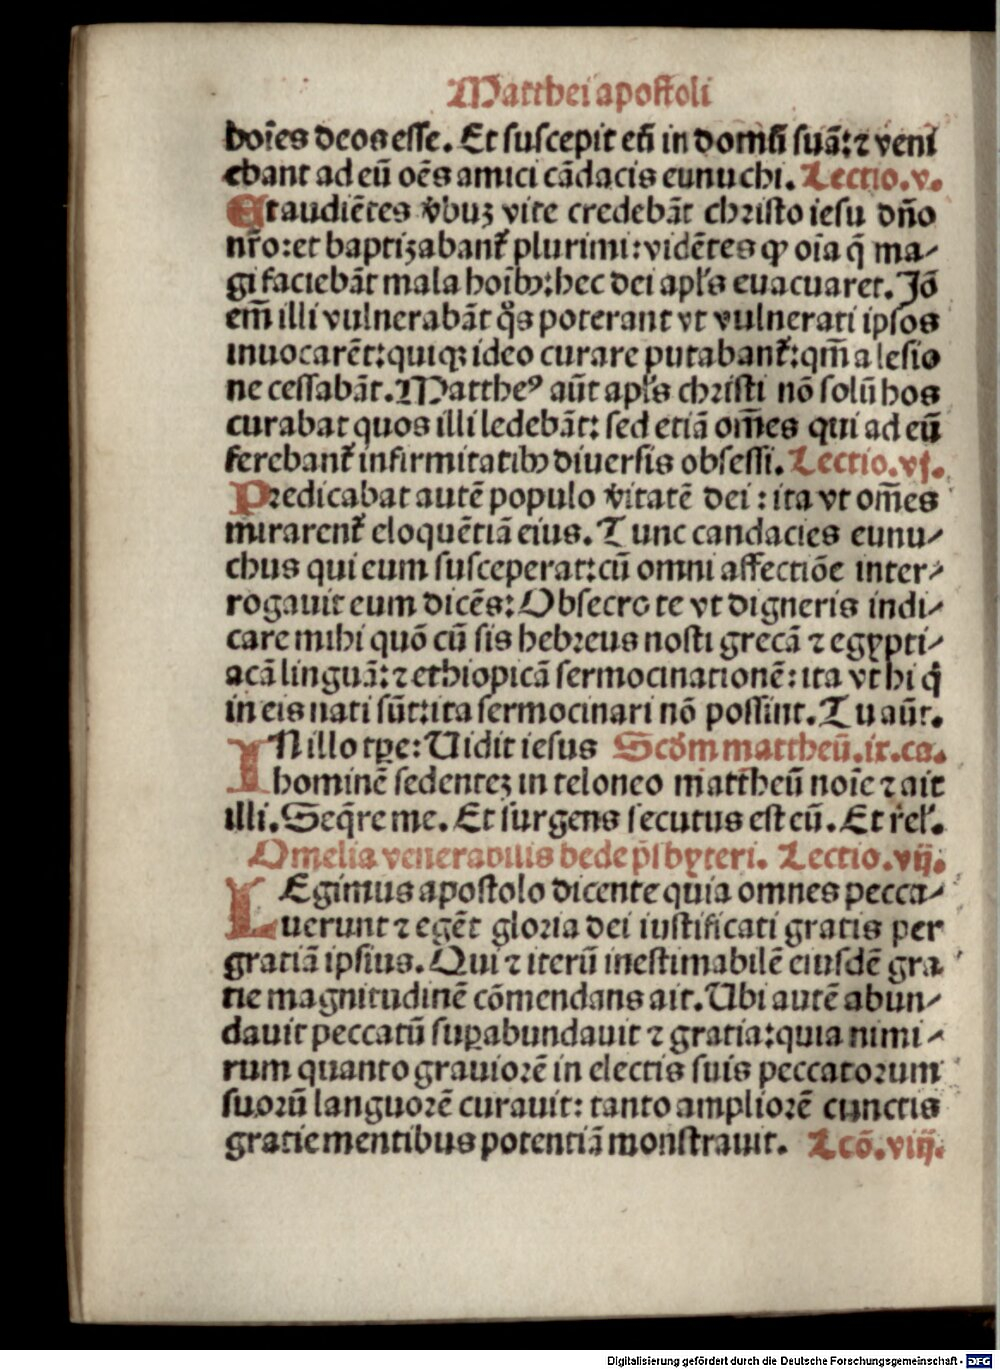 Matthei apostoli
hoīes deos esse. Et suscepit eū in domū suā: ⁊ veni
ebant ad eū oēs amici cādacis eunuchi. Lectio.v.
Et audiētes v̄buꝫ vite credebāt christo iesu dn̄o
nr̄o: et baptiꝫabant᷑ plurimi: vidētes ꝙ oīa q̄ ma⸗
gi faciebāt mala hoīb⁹: hec dei apl's euacuaret. Iōͣ
em̄ illi vulnerabāt q̊s poterant vt vulnerati ipsos
inuocarēt: quiqꝫ ideo curare putabant᷑: qm̄ a lesio
ne cessabāt. Matthe⁹ aūt apl's christi nō solū hos
curabat quos illi ledebāt: sed etiā om̄es qui ad eū
ferebant᷑ infirmitatib⁹ diuersis obsessi. Lectio.vj.
Predicabat autē populo v̄itatē dei: ita vt om̄es
mirarent᷑ eloquētiā eius. Tunc candacies eunu⸗
chus qui eum susceperat: cū omni affectiōe inter⸗
rogauit eum dicēs: Obsecro te vt digneris indi⸗
care mihi quō cū sis hebreus nosti grecā ⁊ egypti⸗
acā linguā: ⁊ ethiopicā sermocinationē: ita vt hi q̇
in eis nati sūt: ita sermocinari nō possint. Tu aūt.
IN illo tꝑe: Uidit iesus Scd̄m mattheū.ix.ca.
hominē sedenteꝫ in teloneo mattheū noīe ⁊ ait
illi. Seq̄re me. Et surgens secutus est eū. Et rel'.
Omelia venerabilis bede p̄sbyteri. Lectio.vij.
LEgimus apostolo dicente quia omnes pecca⸗
uerunt ⁊ egēt gloria dei iustificati gratis per
gratiā ipsius. Qui ⁊ iterū inestimabilē eiusdē gra⸗
tie magnitudinē cōmendans ait. Ubi autē abun⸗
dauit peccatū suꝑabundauit ⁊ gratia: quia nimi⸗
rum quanto grauiorē in electis suis peccatorum
suorū languorē curauit: tanto ampliorē cunctis
gratie mentibus potentiā monstrauit. Lcō.viij.
Digitalisierung gefördert durch die Deutsche Forschungsgemeinschaft - DFG